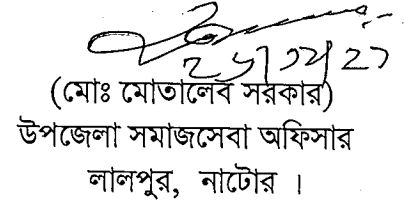 (মোঃ মোতালেব সরকার)
উপজেলা সমাজসেবা অফিসার
লালপুর, নাটোর ।